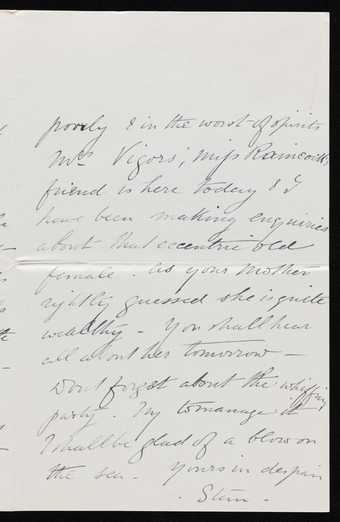 poorly & in the worst of spirits
Mrs Vigors', Miss Raincock's
friend is here today & I
have been making enquiries
about that eccentric old
female. As your Mother
rightly guessed she is quite
wealthy - You shall hear
all about her tomorrow -
Dont forget about the whiffing
party. Try to manage it
I shall be glad of a blow on
the sea. Yours in despair